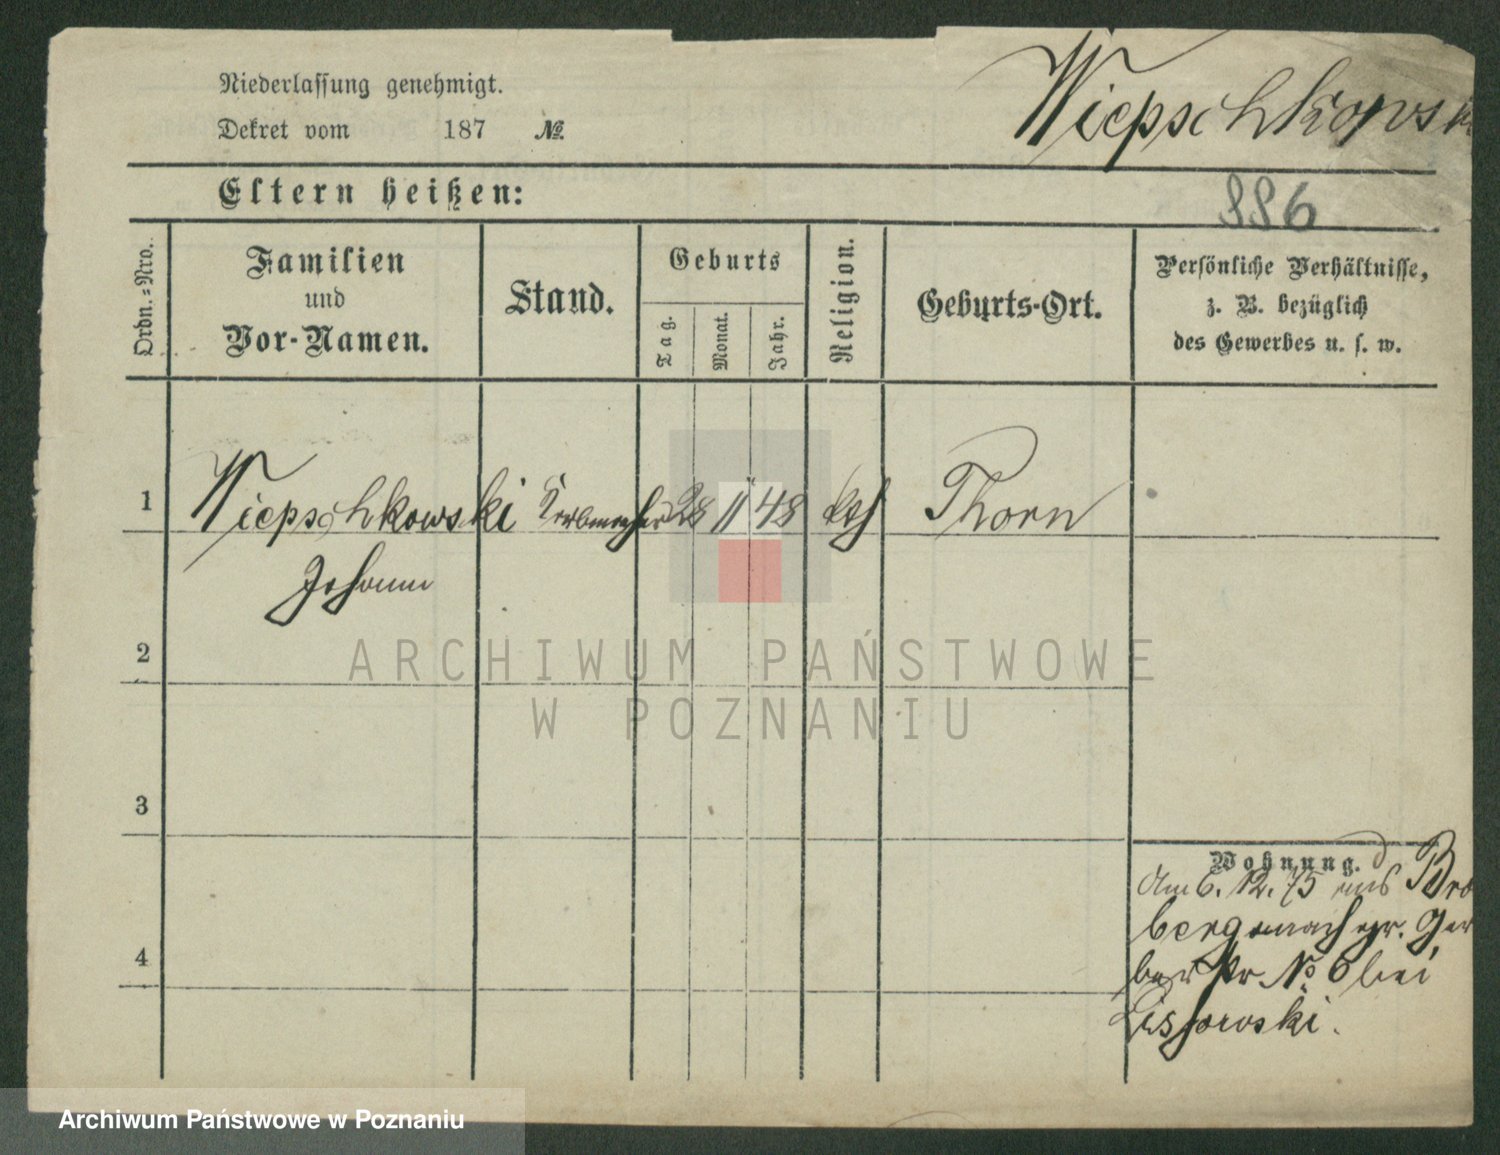 Niederlassung genehmigt.
Dekret vom 187 №
Wiepschkowski
Eltern heißen:
886
Ordn.-Nro.
Familien
und
Vor-Namen.
Stand.
Geburts
Tag.
Monat.
Jahr.
Religion.
Geburts-Ort.
Persönliche Verhältnisse,
z. B. bezüglich
des Gewerbes u. s. w.
1
Wiepschkowski Korbmacher 28 11 48 kth Thorn
Johann
2
ARCHIWUM PAŃSTWOWE
W POZNANIU
3
Wohnung.
Am 6. 12. 75 aus Bro
berg nach gr. Ger
ber Str No 6 bei
4
Archiwum Państwowe w Poznaniu